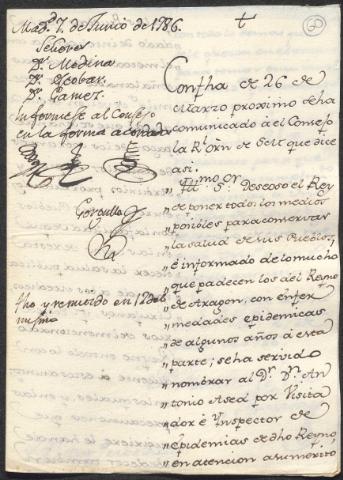 Mad.d 7. de Junio de 1786.
t
60
Señores
Dr. Medina
Dr. Escobar
Dr. Gamez.
Informese al Consejo
en la forma acordada
Gorgullo
fho y remitido en 12 de
mismo
Con fha de 26 de
Marzo proximo se ha
comunicado à el Consejo
la Rl. Orn de S M que dice
asi.
" Illmo. Sor. Deseoso el Rey
" de poner todos los medios
" posibles para conservar
" la salud de sus Pueblos,
" è informado de lo mucho
" que padecen los del Reyno
" de Aragon, con enfer
" medades epidemicas
" de algunos años à esta
" parte; se ha servido
" nombrar al Dr. Dn. An
" tonio Ased por Visita
" dor è Ynspector de
" epidemias de dho Reyno,
" en atencion a su merito,